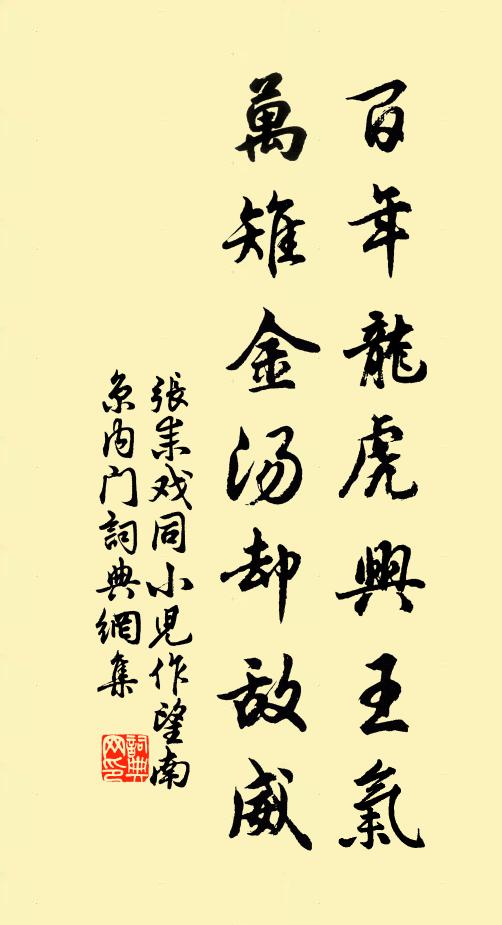 百年龍虎興王氣
萬雉金湯却敌威
張耒戏同小児作望南
京内门詞典網集
詞典
网印